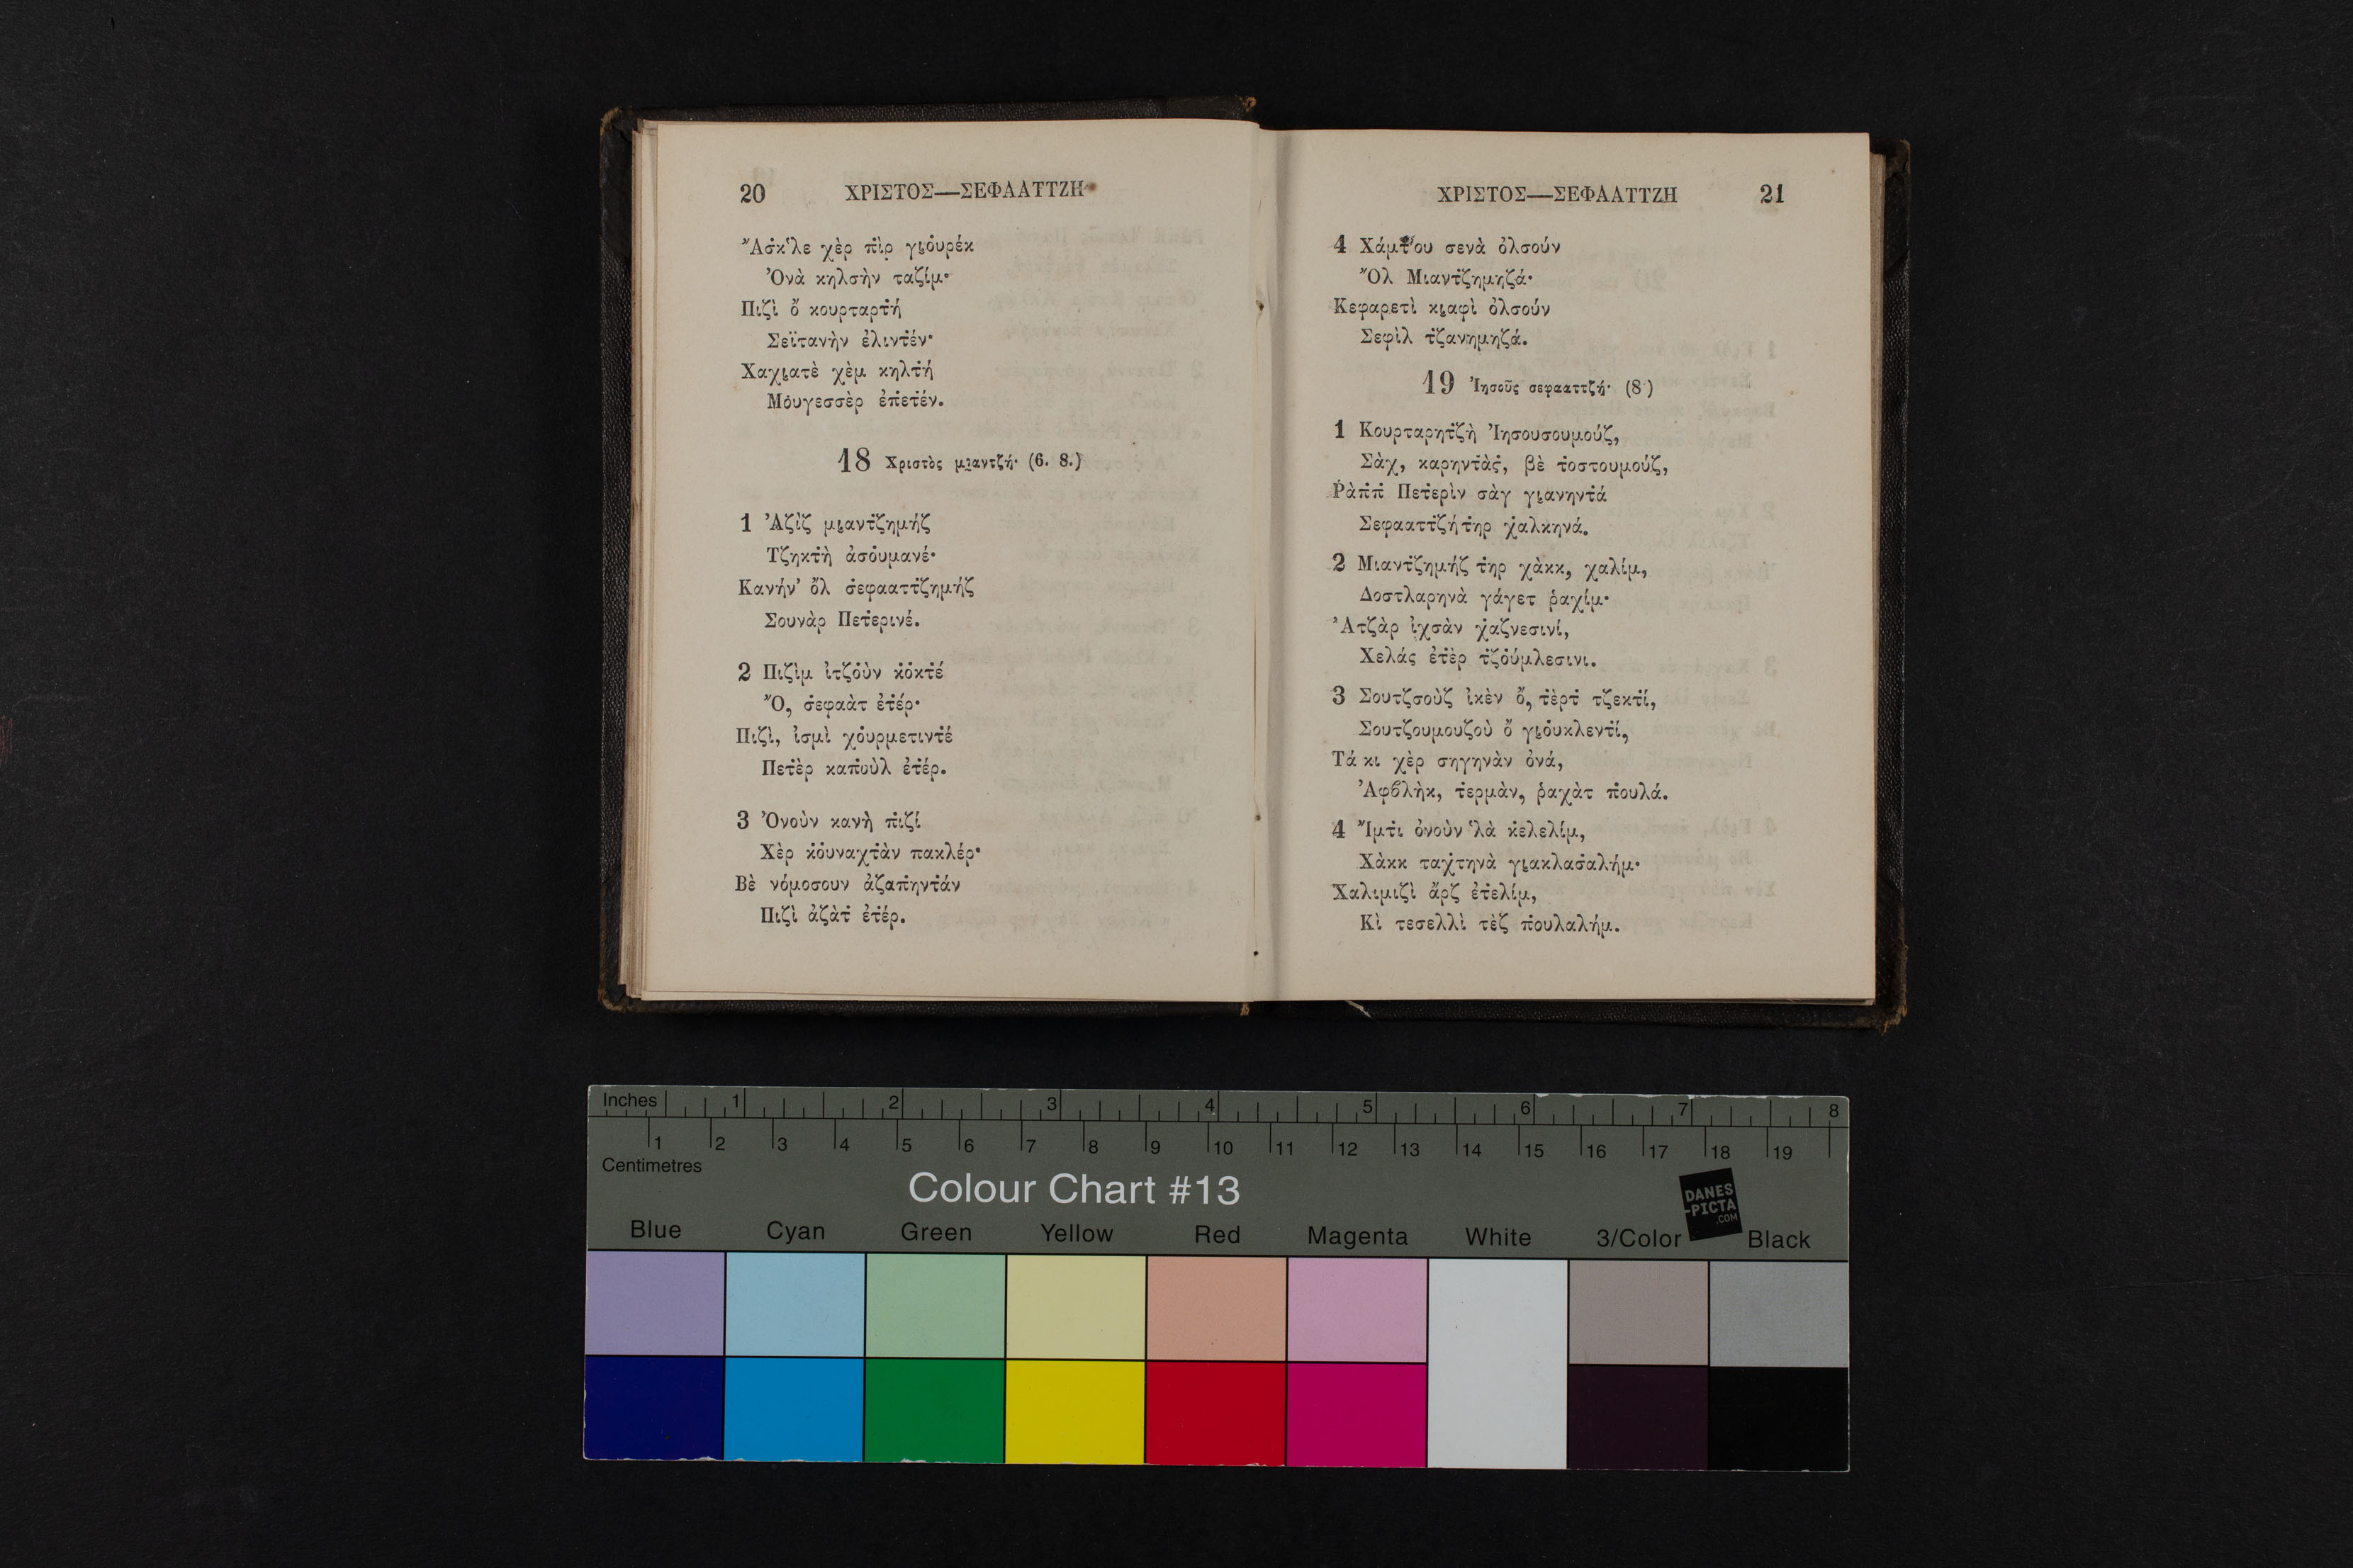 20 ΧΡΙΣΤΟΣ—ΣΕΦΑΑΤΤΖΗ
Ἄσ̇κ'λε χὲρ π̇ὶρ γι̯ο̇υρέκ
Ὀνὰ κηλσὴν ταζίμ·
Πιζὶ ὄ κουρταρτ̇ή
Σεϊτανὴν ἐλιντ̇έν·
Χαχι̯ατὲ χὲμ κηλτ̇ή
Μο̇υγεσσὲρ ἐπ̇ετ̇έν.
18 Χριστὸς μι̯αντζή· (6. 8.)
1 Ἀζὶζ μι̯αντ̇ζημήζ
Τζηκτ̇ὴ ἀσο̇υμανέ·
Κανήν' ὄλ σ̇εφααττ̇ζημήζ
Σουνὰρ Πετ̇ερινέ.
2 Πιζὶμ ἰτζο̇ὺν κ̇ο̇κτ̇έ
Ὄ, σ̇εφαὰτ ἐτ̇έρ·
Πιζὶ, ἰσμὶ χο̇υρμετιντ̇έ
Πετ̇ὲρ καπ̇οὺλ ἐτ̇έρ.
3 Ὀνοὺν κανὴ π̇ιζί
Χὲρ κ̇ο̇υναχτ̇ὰν πακλέρ·
Βὲ νόμοσουν ἀζαπ̇ηντ̇άν
Πιζὶ ἀζὰτ̇ ἐτ̇έρ.
ΧΡΙΣΤΟΣ—ΣΕΦΑΑΤΤΖΗ 21
4 Χάμτ̇'ου σενὰ ὀλσούν
Ὂλ Μιαντ̇ζημηζά·
Κεφαρετὶ κι̯αφὶ ὀλσούν
Σεφὶλ τ̇ζανημηζά.
19 Ἰησοῦς σεφααττζή· (8)
1 Κουρταρητ̇ζὴ Ἰησουσουμούζ,
Σὰχ, καρηντ̇ὰσ̇, βὲ τ̇οστουμούζ,
Ῥὰπ̇π̇ Πετ̇ερὶν σὰγ γι̯ανηντ̇ά
Σεφααττ̇ζή τ̇ηρ χ̇αλκηνά.
2 Μιαντ̇ζημήζ τ̇ηρ χὰκκ, χαλίμ,
Δοστλαρηνὰ γάγετ ῥαχίμ·
Ἀτζὰρ ἰχσὰν χ̇αζνεσινί,
Χελάς ἐτ̇ὲρ τ̇ζο̇ύμλεσινι.
3 Σουτζσοὺζ ἰκὲν ὄ, τ̇ὲρτ̇ τζεκτί,
Σουτζουμουζοὺ ὄ γι̯ο̇υκλεντί,
Τά κι χὲρ σηγηνὰν ὀνά,
Ἀφβλὴκ, τ̇ερμὰν, ῥαχὰτ π̇ουλά.
4 Ἴμτ̇ι ὀνοὺν 'λὰ κ̇ελελίμ,
Χὰκκ ταχ̇τηνὰ γι̯ακλασ̇αλήμ·
Χαλιμιζὶ ἄρζ ἐτ̇ελίμ,
Κὶ τεσελλὶ τὲζ π̇ουλαλήμ.
Inches 1 2 3 4 5 6 7 8
1 2 3 4 5 6 7 8 9 10 11 12 13 14 15 16 17 18 19
Centimetres
Colour Chart #13
DANES
-PICTA
.COM
Blue Cyan Green Yellow Red Magenta White 3/Color Black